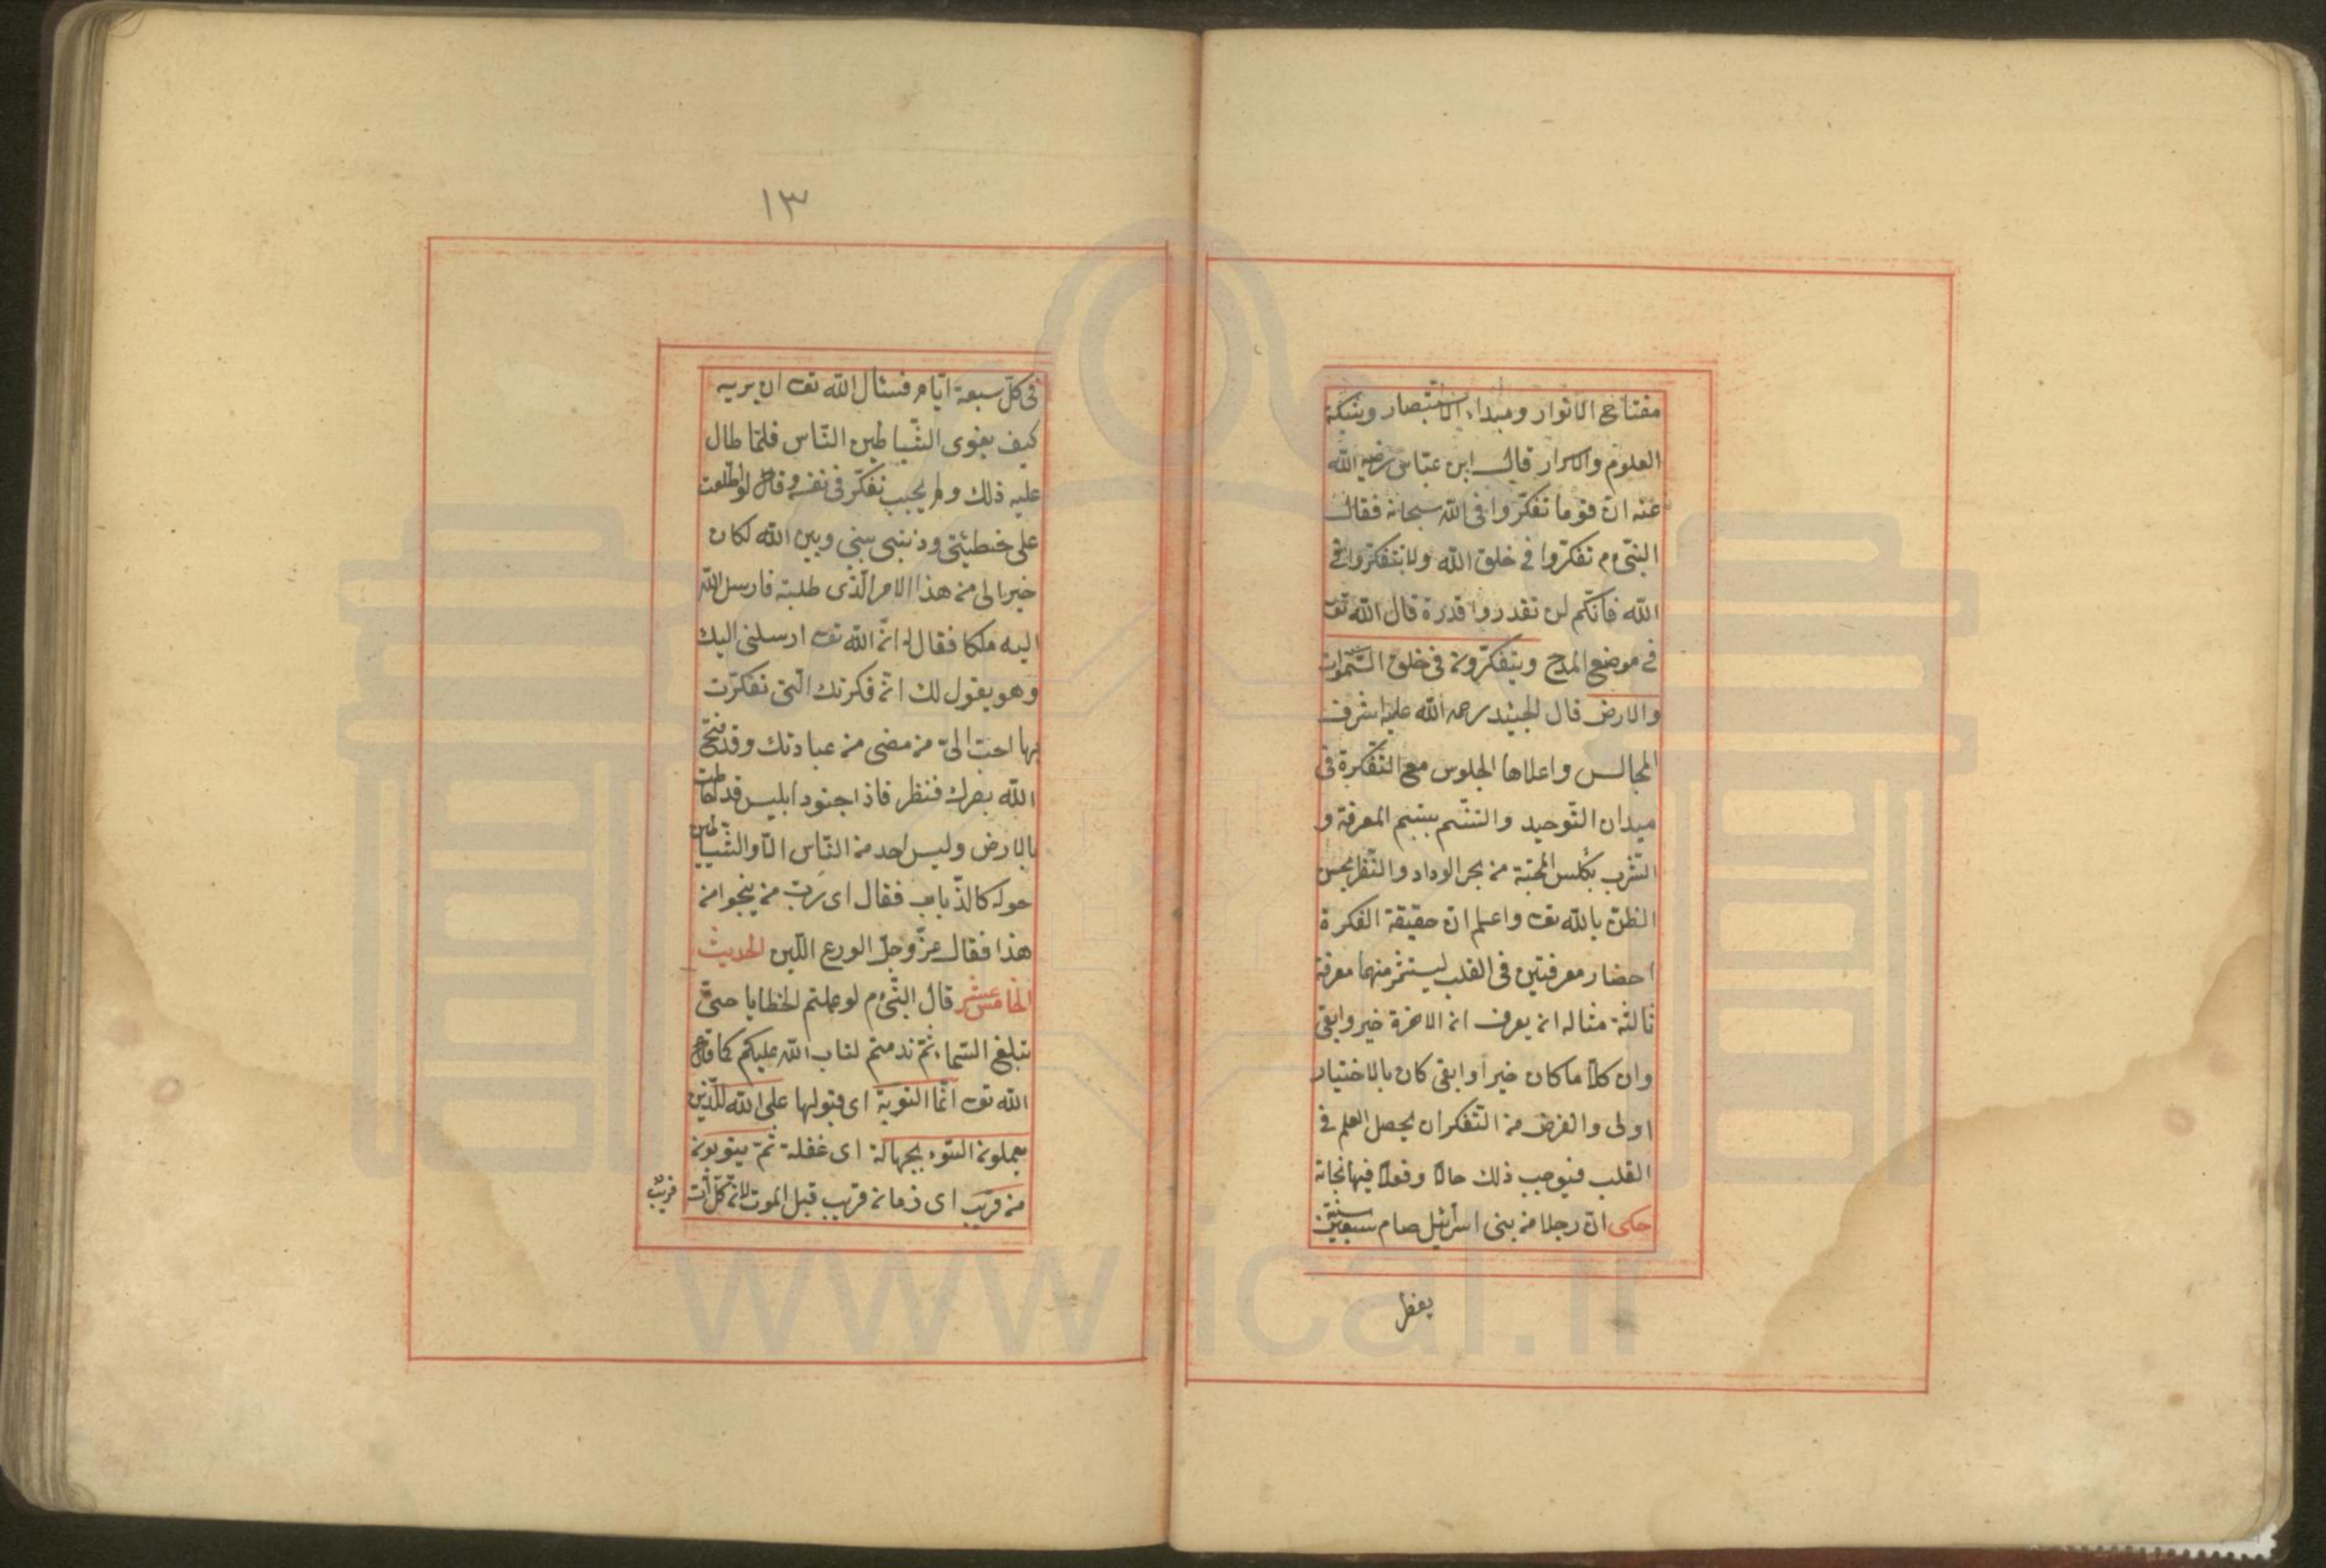 مفتاح الانوار ومبداء الاستبصار وشبكة
العلوم والاسرار قال ابن عبّاس رضى الله
عنه ان قوما تفكّروا فى الله سبحانه فقال
النبىّ م تفكّروا فى خلق الله ولا تتفكّروا فى
الله فانّكم لن تقدروا قدره قال الله تع
فى موضع المدح ويتفكّرون فى خلق السّموات
والارض قال الجنيد رحمه الله عليه اشرف
المجالس واعلاها الجلوس مع الفكرة فى
ميدان التّوحيد والتنسّم بنسيم المعرفة و
الشّرب بكاس المحبّة من بحر الوداد والنّظر بحسن
الظنّ بالله تع واعلم انّ حقيقة الفكرة
احضار معرفتين فى القلب ليستثمر منهما معرفة
ثالثة مثاله ان يعرف ان الاخرة خير وابقى
وان كلّما كان خيرا وابقى كان بالاختيار
اولى والغرض من التّفكر ان يحصل العلم فى
القلب فيوجب ذلك حالا وفعلا فيها نجاته
حكى انّ رجلا من بنى اسرائيل صام سبعين سنة
يفطر
١٣
فى كلّ سبعة ايّام فسئال الله تع ان يريه
كيف يغوى الشّياطين النّاس فلمّا طال
عليه ذلك ولم يجب تفكّر فى نفسه وقال لو اطّلعت
على خطيئتى وذنبى بينى وبين الله لكان
خيرا لى من هذا الامر الّذى طلبته فارسل الله
اليه ملكا فقال له انّ الله تع ارسلنى اليك
وهو يقول لك انّ فكرتك الّتى تفكّرت
بها احبّ الىّ من مضى من عبادتك وقد فتح
الله بصرك فنظر فاذا جنود ابليس قد احاطت
بالارض وليس احد من النّاس الّا والشّياطين
حوله كالذّباب فقال اى ربّ من ينجوا من
هذا فقال عزّ وجلّ الورع اللّين الحديث
الخامس عشر قال النّبىّ م لو عملتم الخطايا حتىّ
تبلغ السّماء ثمّ ندمتم لتاب الله عليكم كما قال
الله تع انّما التّوبة اى قبولها على الله للّذين
يعملون السّوء بجهالة اى غفلة ثمّ يتوبون
من قريب اى زمان قريب قبل الموت لانّ كلّ آت
قريب
www.ical.ir